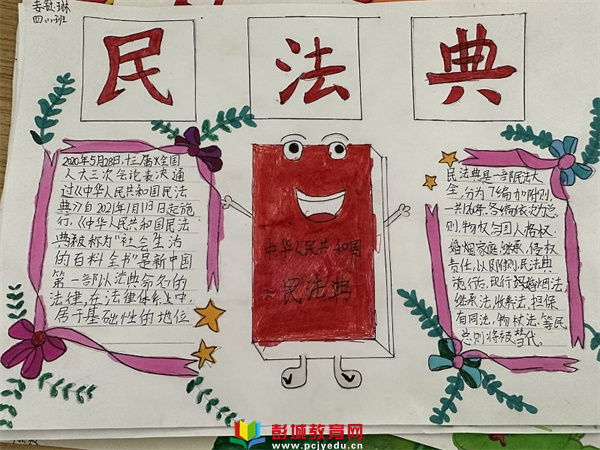 四(1)班
民 法 典
2020年5月28日,十三届全国
人大三次会议表决通
过《中华人民共和国民法
典》自2021年1月1日起施
行,《中华人民共和国民法
典被称为"社会生活
的百科全书"是新中国
第一部以法典命名的
法律,在法律体系中,
属于基础性的地位
中华人民共和国
民法典
民法典是一部民法大
全,分为7编加附则,
则,物权,合同,人格权,
婚姻家庭,继承,侵权
责任,以及附则,民法典
施行后,现行婚姻法,
继承法,收养法,担保
法,物权法,等民
总则将被替代。
彭城教育网
www.pcjyedu.cn